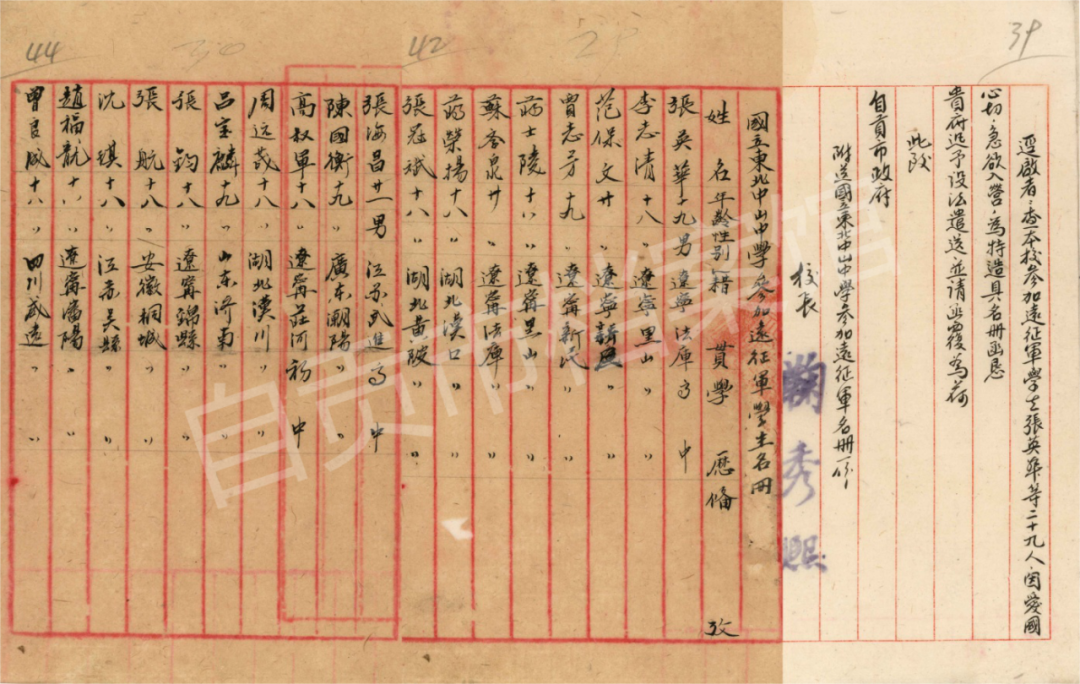 39
逕啟者:查本校參加遠征軍學生張英華等二十九人,因愛國
心切,急欲入營,為特造具名冊函恳
貴府迅予设法遣送並請函覆為荷
此致
自貢市政府
附送國立東北中山中學参加遠征軍名册一份
校長 鞠秀熙
國立東北中山中學參加遠征軍學生名冊
姓 名 年齡 性别 籍 貫 學 歷 備 攷
張英華 十九 男 遼寧法庫 高 中
李志清 十八 〃 遼寧黑山 〃 〃
范保文 廿 〃 遼寧新民 〃 〃
曾志芳 十九 〃 遼寧新民 〃 〃
蔣士陵 十八 〃 遼寧黑山 〃 〃
蘇泉 廿 〃 遼寧法庫 〃 〃
蔣榮揚 十八 〃 湖北漢口 〃 〃
張冠斌 十八 〃 湖北黄陂 〃 〃
42
28
張海昌 廿一 男 江苏武進 高 中
陳國衡 十九 〃 廣东潮陽 〃 〃
高叔軍 十八 〃 遼寧莊河 初 中
周远義 十八 〃 湖北漢川 〃 〃
吕宝麟 十九 〃 山东济南 〃 〃
張鈞 十八 〃 遼寧錦縣 〃 〃
張航 十八 〃 安徽桐城 〃 〃
沈琪 十八 〃 江苏吴縣 〃 〃
趙福龍 十八 〃 遼寧瀋陽 〃 〃
曾良成 十八 〃 四川威远 〃 〃
44
30
自贡市档案馆